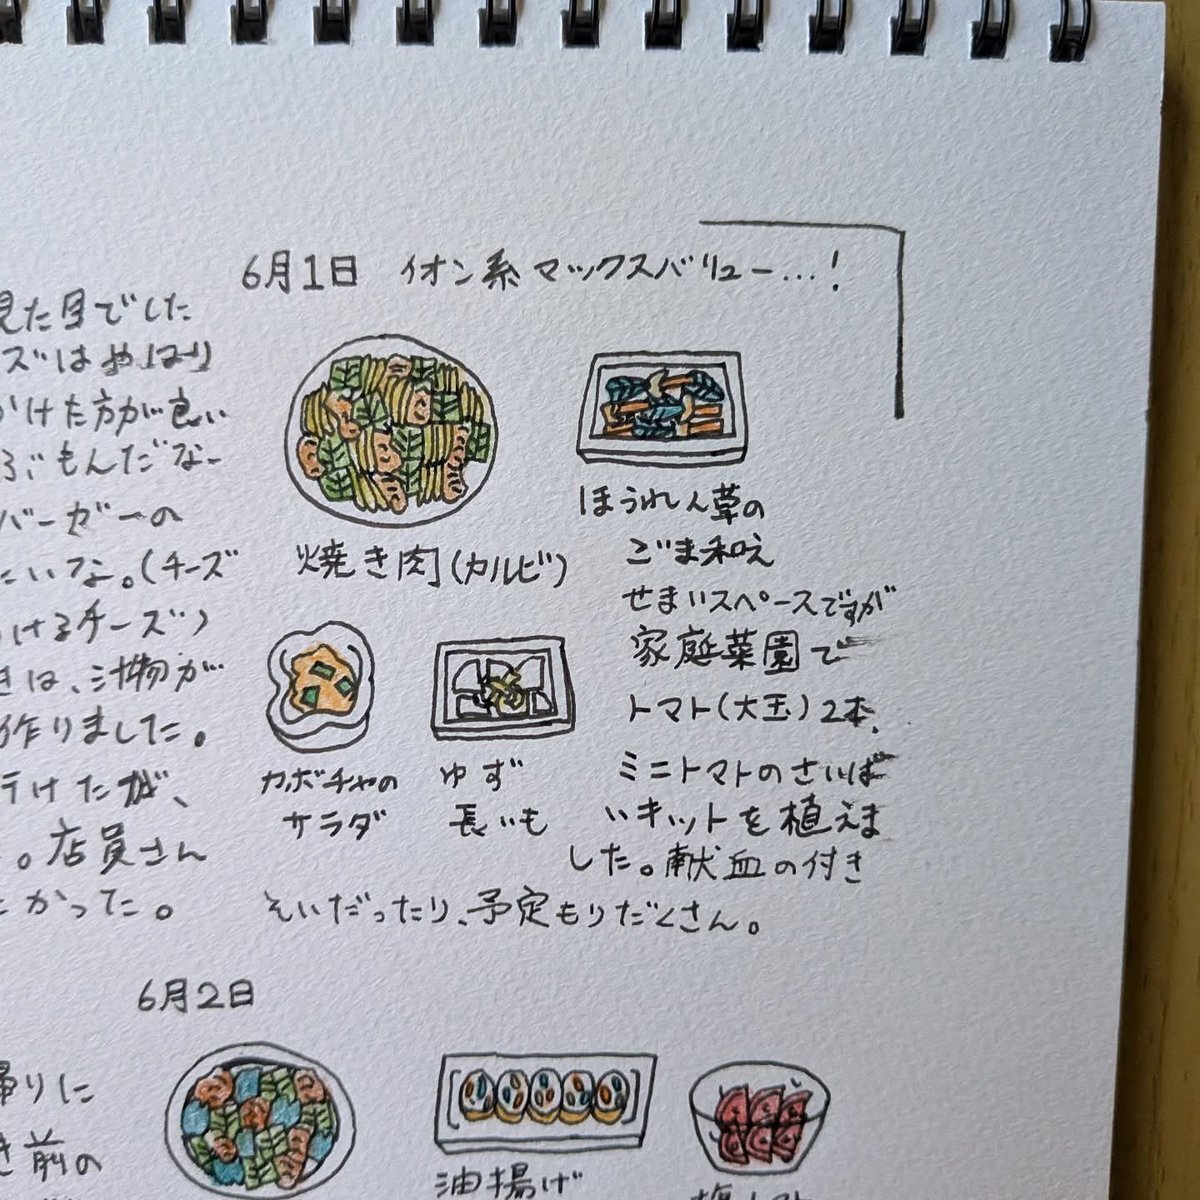 6月1日 イオン系マックスバリュー…!
焼き肉(カルビ)
ほうれん草の
ごま和え
カボチャの
サラダ
ゆず
長いも
せまいスペースですが
家庭菜園で
トマト(大玉)2本、
ミニトマトのさいば
いキットを植えま
した。献血の付き
そいだったり、予定もりだくさん。
見た目でした
ズはやはり
かけた方が良い
ぶもんだな〜
バーガーの
いな。(チーズ
けるチーズ)
きは、汁物が
作りました。
けたが、
。店員さん
かった。
6月2日
帰りに
き前の
油揚げ